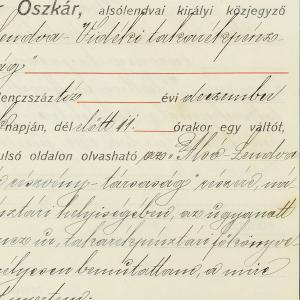 r Oszkár, alsólendvai királyi közjegyző
Lendva-Vidéki takarékpénz-
ság"
lenczszáz tíz évi deczember
napján, dél előtt 11 órakor egy váltót,
ulsó oldalon olvasható az "Alsó-Lendva
részvény-társaság" részére, má
ztári helyiségében, az ugyanott
ncz úr, takarékpénztári főkönyve
mélyesen bemutattam, a mire
nyertem: